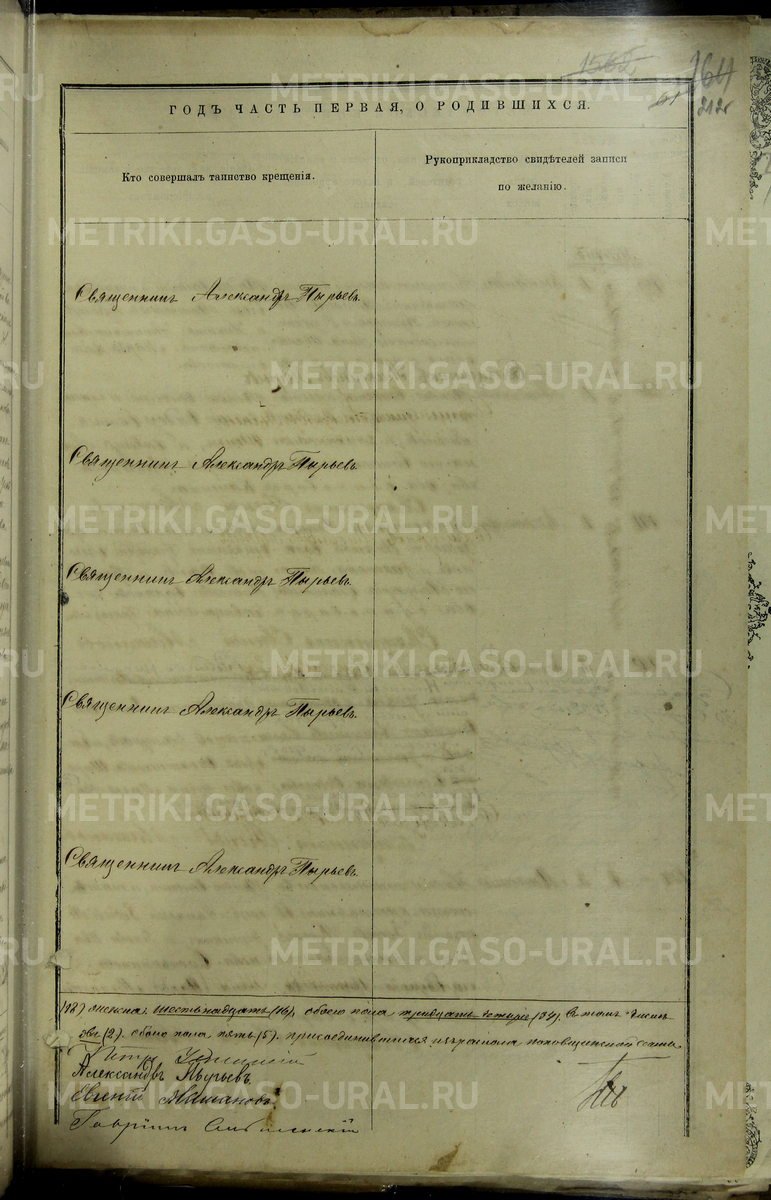 1566
164
61
212
ГОДЪ ЧАСТЬ ПЕРВАЯ, О РОДИВШИХСЯ.
Кто совершалъ таинство крещенія.
Рукоприкладство свидѣтелей записи
по желанію.
Священникъ Александръ Пырьевъ.
Священникъ Александръ Пырьевъ.
Священникъ Александръ Пырьевъ.
Священникъ Александръ Пырьевъ.
Священникъ Александръ Пырьевъ.
(18) женска. шестьнадцать (16), обоего пола тридцать четыре (34). Въ томъ числѣ
две (2). обоего пола пять (5). присоединившихся изъ раскола поповщинской секты.
Петръ
Александръ Пырьевъ
Евгеній
Гавріилъ
METRIKI.GASO-URAL.RU